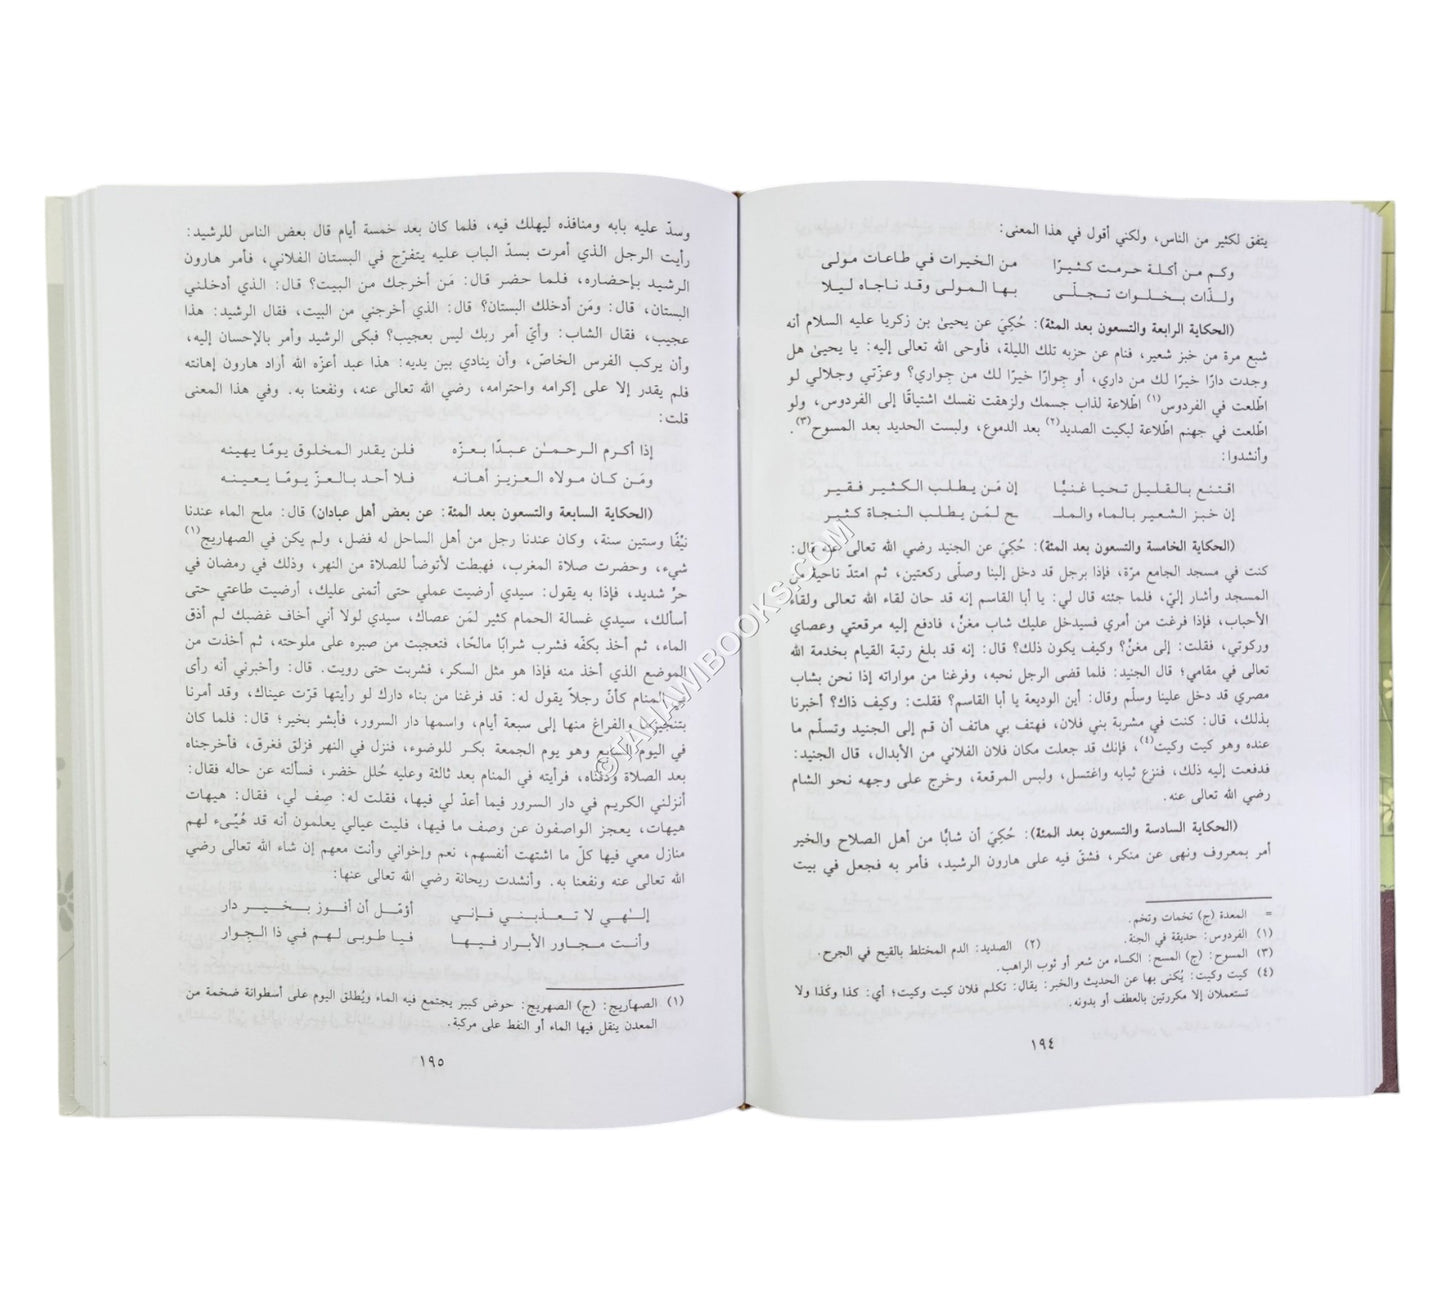 يتفق لكثير من الناس، ولكني أقول في هذا المعنى:
وكم من أكلة حرمت كثيرًا من الخيرات في طاعات مولى
ولذّات بخلوات تجلّى بها المولى وقد ناجاه ليلا
(الحكاية الرابعة والتسعون بعد المئة): حُكِيَ عن يحيىٰ بن زكريا عليه السلام أنه
شبع مرة من خبز شعير، فنام عن حزبه تلك الليلة، فأوحى الله تعالى إليه: يا يحيىٰ هل
وجدت دارًا خيرًا لك من داري، أو جِوارًا خيرًا لك من جِواري؟ وعزّتي وجلالي لو
اطّلعت في الفردوس(١) اطّلاعة لذاب جسمك ولزهقت نفسك اشتياقًا إلى الفردوس، ولو
اطّلعت في جهنم اطّلاعة لبكيت الصديد(٢) بعد الدموع، ولبست الحديد بعد المسوح(٣).
وأنشدوا:
اقتنع بالقليل تحيا غنيًّا إن مَن يطلب الكثير فقير
إن خبز الشعير بالماء والملـ ـح لمَن يطلب النجاة كثير
(الحكاية الخامسة والتسعون بعد المئة): حُكِيَ عن الجنيد رضي الله تعالى عنه قال:
كنت في مسجد الجامع مرّة، فإذا برجل قد دخل إلينا وصلّى ركعتين، ثم امتدّ ناحية من
المسجد وأشار إليّ، فلما جئته قال لي: يا أبا القاسم إنه قد حان لقاء الله تعالى ولقاء
الأحباب، فإذا فرغت من أمري فسيدخل عليك شاب مغنٌّ، فادفع إليه مرقعتي وعصاي
وركوتي، فقلت: إلى مغنٍّ؟ وكيف يكون ذلك؟ قال: إنه قد بلغ رتبة القيام بخدمة الله
تعالى في مقامي؛ قال الجنيد: فلما قضى الرجل نحبه، وفرغنا من مواراته إذا نحن بشاب
مصري قد دخل علينا وسلّم وقال: أين الوديعة يا أبا القاسم؟ فقلت: وكيف ذاك؟ أخبرنا
بذلك، قال: كنت في مشربة بني فلان، فهتف بي هاتف أن قم إلى الجنيد وتسلّم ما
عنده وهو كيت وكيت(٤)، فإنك قد جعلت مكان فلان الفلاني من الأبدال، قال الجنيد:
فدفعت إليه ذلك، فنزع ثيابه واغتسل، ولبس المرقعة، وخرج على وجهه نحو الشام
رضي الله تعالى عنه.
(الحكاية السادسة والتسعون بعد المئة): حُكِيَ أن شابًا من أهل الصلاح والخير
أمر بمعروف ونهى عن منكر، فشقّ فيه على هارون الرشيد، فأمر به فجعل في بيت
= المعدة (ج) تخمات وتخم.
(١) الفردوس: حديقة في الجنة. (٢) الصديد: الدم المختلط بالقيح في الجرح.
(٣) المسوح: (ج) المسح: الكساء من شعر أو ثوب الراهب.
(٤) كيت وكيت: يُكنى بها عن الحديث والخبر: يقال: تكلم فلان كيت وكيت؛ أي: كذا وكذا ولا
تستعملان إلا مكررتين بالعطف أو بدونه.
١٩٤
وسدّ عليه بابه ومنافذه ليهلك فيه، فلما كان بعد خمسة أيام قال بعض الناس للرشيد:
رأيت الرجل الذي أمرت بسدّ الباب عليه يتفرّج في البستان الفلاني، فأمر هارون
الرشيد بإحضاره، فلما حضر قال: مَن أخرجك من البيت؟ قال: الذي أدخلني
البستان، قال: ومَن أدخلك البستان؟ قال: الذي أخرجني من البيت، فقال الرشيد: هذا
عجيب، فقال الشاب: وأيّ أمر ربك ليس بعجيب؟ فبكى الرشيد وأمر بالإحسان إليه،
وأن يركب الفرس الخاصّ، وأن ينادي بين يديه: هذا عبد أعزّه الله أراد هارون إهانته
فلم يقدر إلا على إكرامه واحترامه، رضي الله تعالى عنه، ونفعنا به. وفي هذا المعنى
قلت:
إذا أكرم الرحمـٰن عبدًا بعزّه فلن يقدر المخلوق يومًا يهينه
ومَن كان مولاه العزيز أهانه فلا أحد بالعزّ يومًا يعينه
(الحكاية السابعة والتسعون بعد المئة: عن بعض أهل عبادان) قال: ملح الماء عندنا
نيّفًا وستين سنة، وكان عندنا رجل من أهل الساحل له فضل، ولم يكن في الصهاريج(١)
شيء، وحضرت صلاة المغرب، فهبطت لأتوضأ للصلاة من النهر، وذلك في رمضان في
حرّ شديد، فإذا به يقول: سيدي أرضيت عملي حتى أتمنى عليك، أرضيت طاعتي حتى
أسألك، سيدي غسالة الحمام كثير لمَن عصاك، سيدي لولا أني أخاف غضبك لم أذق
الماء، ثم أخذ بكفّه فشرب شرابًا مالحًا، فتعجبت من صبره على ملوحته، ثم أخذت من
الموضع الذي أخذ منه فإذا هو مثل السكر، فشربت حتى رويت. قال: وأخبرني أنه رأى
في المنام كأنّ رجلاً يقول له: قد فرغنا من بناء دارك لو رأيتها قرّت عيناك، وقد أمرنا
بتنجيزها والفراغ منها إلى سبعة أيام، واسمها دار السرور، فأبشر بخير؛ قال: فلما كان
في اليوم السابع وهو يوم الجمعة بكر للوضوء، فنزل في النهر فزلق فغرق، فأخرجناه
بعد الصلاة ودفناه، فرأيته في المنام بعد ثالثة وعليه حُلل خضر، فسألته عن حاله فقال:
أنزلني الكريم في دار السرور فيما أعدّ لي فيها، فقلت له: صِف لي، فقال: هيهات
هيهات، يعجز الواصفون عن وصف ما فيها، فليت عيالي يعلمون أنه قد هُيِّىء لهم
منازل معي فيها كلّ ما اشتهت أنفسهم، نعم وإخواني وأنت معهم إن شاء الله تعالى رضي
الله تعالى عنه ونفعنا به. وأنشدت ريحانة رضي الله تعالى عنها:
إلـٰهي لا تعذبني فإني أؤمّل أن أفوز بخير دار
وأنت مجاور الأبرار فيها فيا طوبى لهم في ذا الجوار
(١) الصهاريج: (ج) الصهريج: حوض كبير يجتمع فيه الماء ويُطلق اليوم على أسطوانة ضخمة من
المعدن ينقل فيها الماء أو النفط على مركبة.
١٩٥
©TAHAMIBOOKS.COM